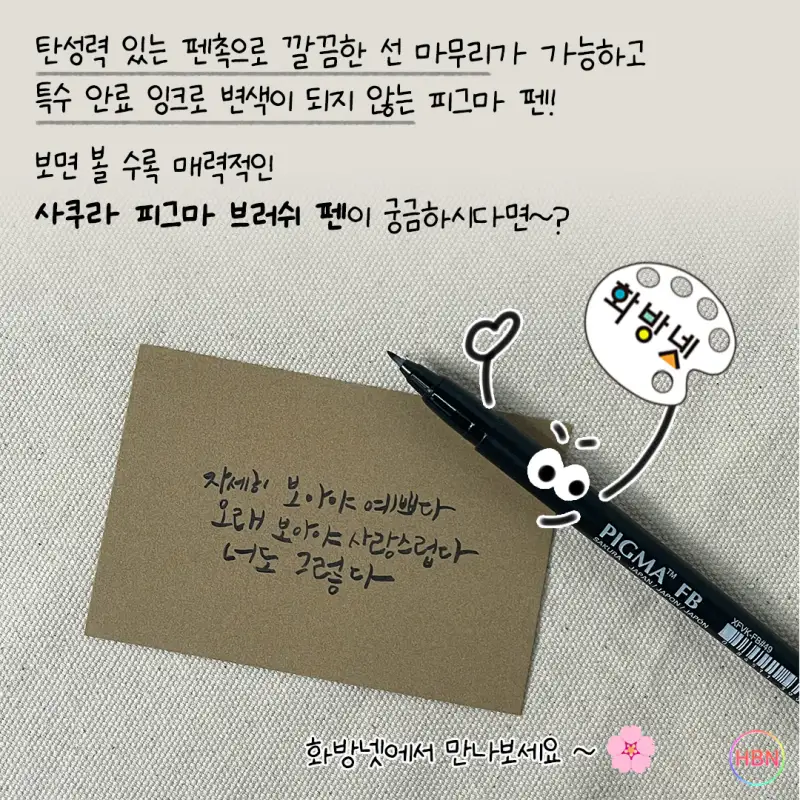 탄성력 있는 펜촉으로 깔끔한 선 마무리가 가능하고
특수 안료 잉크로 변색이 되지 않는 피그마 펜!
보면 볼 수록 매력적인
사쿠라 피그마 브러쉬 펜이 궁금하시다면~?
화방넷
자세히 보아야 예쁘다
오래 보아야 사랑스럽다
너도 그렇다
PIGMA™ FB
SAKURA JAPAN/JAPON/JAPÓN
XFVK-FB#49
화방넷에서 만나보세요 ~
HBN